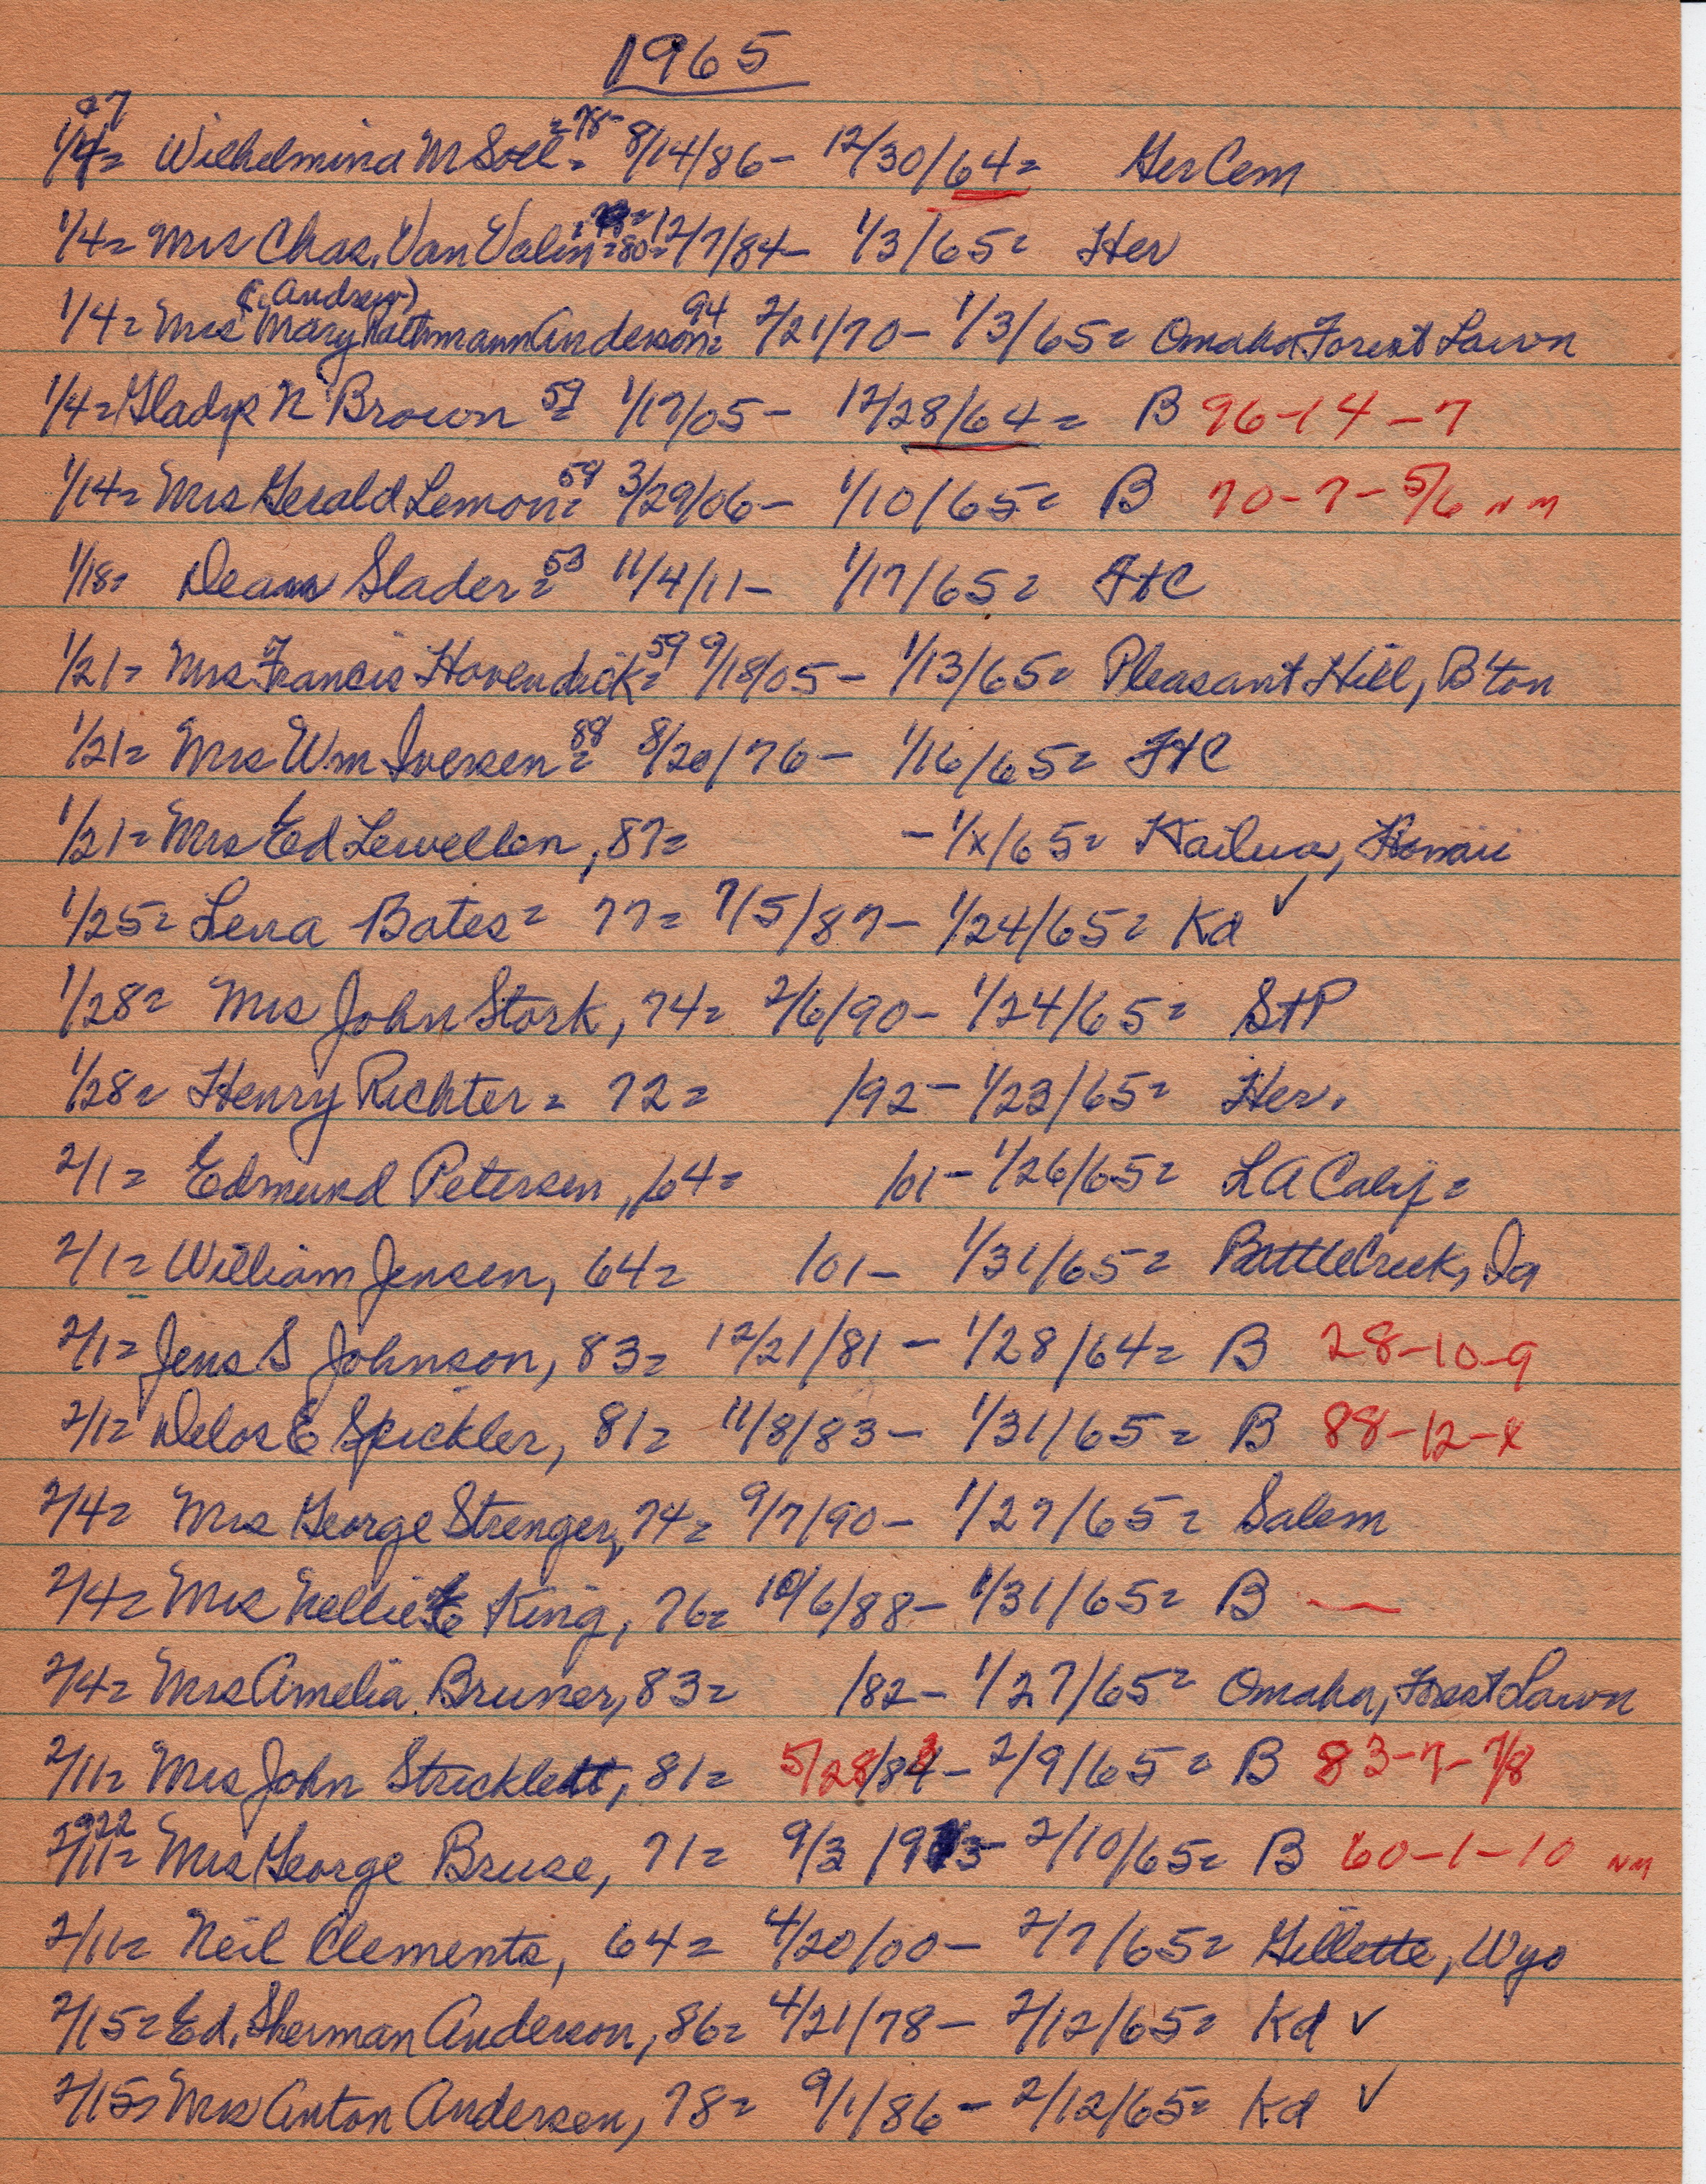 1965
97
1/4= Wilhelmina M Soll = 78- 8/14/86- 12/30/64= Her Cem
1/4= Mrs Chas. Van Valin =80= 12/7/84- 1/3/65= Her
(Andrew)
1/4= Mrs Mary Rathmann Anderson 94= 2/21/70- 1/3/65= Omaha, Forest Lawn
1/4= Gladys N Brown 59= 1/17/05- 12/28/64= B 96-14-7
1/14= Mrs Gerald Lemon 58= 3/29/06- 1/10/65= B 70-7-5/6 NM
1/18= Dean Slader 53= 11/4/11- 1/17/65= FtC
1/21= Mrs Francis Hovendick 59= 9/18/05- 1/13/65= Pleasant Hill, B'ton
1/21= Mrs Wm Iversen 88= 8/20/76- 1/16/65= FtC
1/21= Mrs Ed Lewellen, 87= -1/x/65= Kailua, Hawaii
1/25= Lena Bates= 77= 7/5/87- 1/24/65= Kd ✓
1/28= Mrs John Stork, 74= 2/6/90- 1/24/65= StP
1/28= Henry Richter= 72= /92- 1/23/65= Her.
2/1= Edmund Petersen, 64= /01- 1/26/65= LA Calif=
2/1= William Jensen, 64= /01- 1/31/65= Battle Creek, Ia
2/1= Jens S Johnson, 83= 12/21/81- 1/28/64= B 28-10-9
2/1= Delos E Spickler, 81= 11/8/83- 1/31/65= B 88-12-x
2/4= Mrs George Strenger, 74= 9/7/90- 1/27/65= Salem
2/4= Mrs Nellie King, 76= 10/6/88- 1/31/65= B —
2/4= Mrs Amelia Bruner, 83= /82- 1/27/65= Omaha, Forest Lawn
2/11= Mrs John Stricklett, 81= 5/28/83- 2/9/65= B 83-7-7/8
2/11= Mrs George Bruse, 71= 9/3/93- 2/10/65= B 60-1-10 NM
2/11= Neil Clements, 64= 4/20/00- 2/7/65= Gillette, Wyo
2/15= Ed. Sherman Anderson, 86= 4/21/78- 2/12/65= Kd ✓
2/15= Mrs Anton Andersen, 78= 9/1/86- 2/12/65= Kd ✓